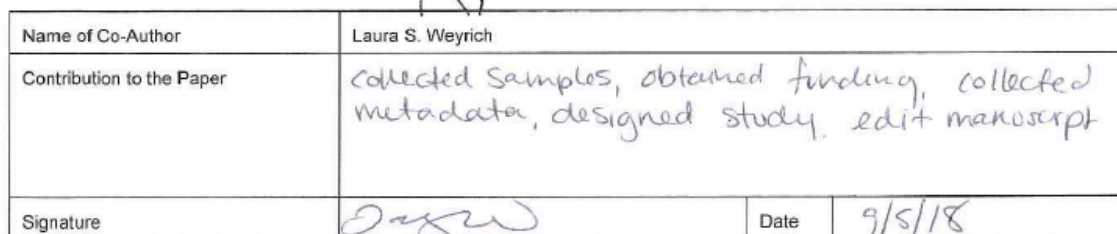 Name of Co-Author Laura S. Weyrich
Contribution to the Paper collected samples, obtained funding, collected
metadata, designed study. edit manuscript
Signature Date 9/5/18